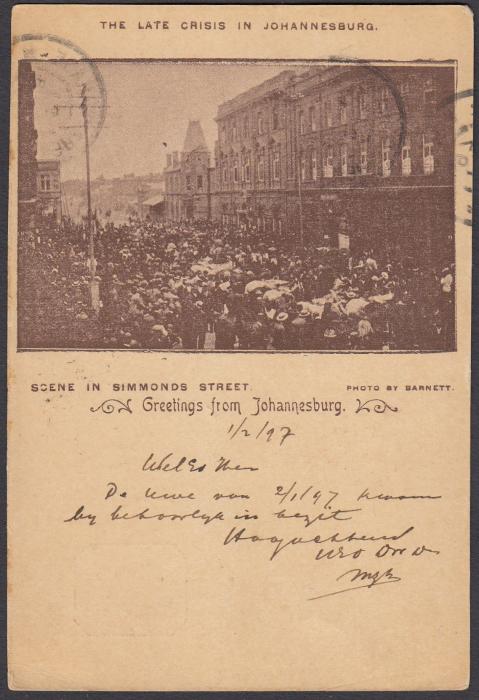 THE LATE CRISIS IN JOHANNESBURG.
SCENE IN SIMMONDS STREET.
PHOTO BY BARNETT.
Greetings from Johannesburg.
1/2/97
WelEd Heer
De Uwe van 2/1/97 kwam
by behoorlyk in bezit
Hoogachtend